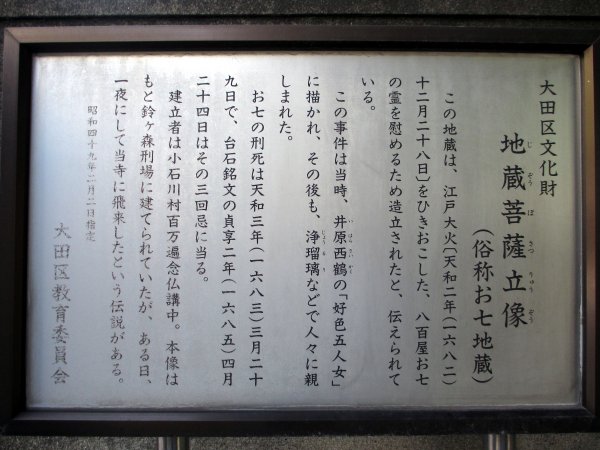 大田区文化財
地蔵菩薩立像
じぞうぼさつりゅうぞう
(俗称お七地蔵)
この地蔵は、江戸大火(天和二年(一六八二)
十二月二十八日)をひきおこした、八百屋お七
の霊を慰めるため造立されたと、伝えられて
いる。
この事件は当時、井原西鶴の「好色五人女」
いはらさいかく
に描かれ、その後も、浄瑠璃などで人々に親
じょうるり
しまれた。
お七の刑死は天和三年(一六八三)三月二十
九日で、台石銘文の貞享二年(一六八五)四月
二十四日はその三回忌に当る。
建立者は小石川村百万遍念仏講中。本像は
もと鈴ヶ森刑場に建てられていたが、ある日、
一夜にして当寺に飛来したという伝説がある。
昭和四十九年二月二日指定
大田区教育委員会